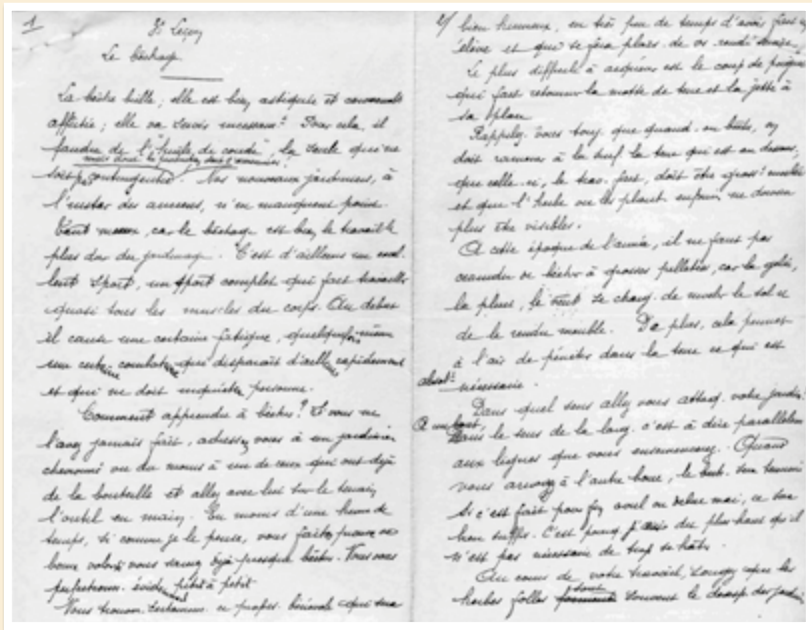 1
Leçon
Le bêchage
La bêche brille ; elle est bien astiquée et convenablt
affûtée ; elle va servir incessamt. Pour cela, il
faudra de l'"huile de coude", la seule qui ne
soit pas contingentée. Nos nouveaux jardiniers, à
l'instar des anciens, n'en manqueront point.
Tant mieux, car le bêchage est bien le travail le
plus dur du jardinage. C'est d'ailleurs un excel
lent sport, un sport complet qui fait travailler
quasi tous les muscles du corps. Au début
il cause une certaine fatigue, quelquefois même
une certaine courbature qui disparaît d'ailleurs rapidement
et qui ne doit inquiéter personne.
Comment apprendre à bêcher ? Si vous ne
l'avez jamais fait, adressez vous à un jardinier
chevronné ou du moins à un de ceux qui ont déjà
de la bouteille et allez avec lui sur le terrain,
l'outil en main. En moins d'une heure de
temps, si comme je le pense, vous faites preuve de
bonne volonté vous saurez déjà presque bêcher. Vous vous
perfectionn. évidemment petit à petit
Vous trouver. certainem. ce profes. bénévole qui sera
2/ bien heureux, en très peu de temps d'avoir fait un
élève et que se fera plaisir de vs rendre service.
Le plus difficile à acquérir est le coup de poignet
qui fait retourner la motte de terre et la jette à
sa place.
Rappelez-vous touj. que quand on bêche, on
doit ramener à la surf. la terre qui est en dessous,
que celle-ci, le trav. fait, doit être grosst morcelée
et que l'herbe ou les plantes enfouies ne doivent
plus être visibles.
A cette époque de l'année, il ne faut pas
craindre de bêcher à grosses pelletées, car la gelée,
la pluie, le vent se charg. de mordre le sol et
de le rendre meuble. De plus, cela permet
à l'air de pénétrer dans la terre ce qui est
absolt nécessaire.
Dans quel sens allez vous attaq. votre jardin ?
A un bout, Dans le sens de la long. c'est à dire parallèlem
aux lignes que vous ensemencerez. Quand
vous arrivez à l'autre bout, le bêch. sera terminé
Si c'est fait pour fin avril ou début mai, ce sera
bien suffis. C'est pourq. j'ai dit plus haut qu'il
n'est pas nécessaire de trop se hâter.
Au cours de votre travail, songez que les
herbes folles sont souvent le désesp. des jardin.